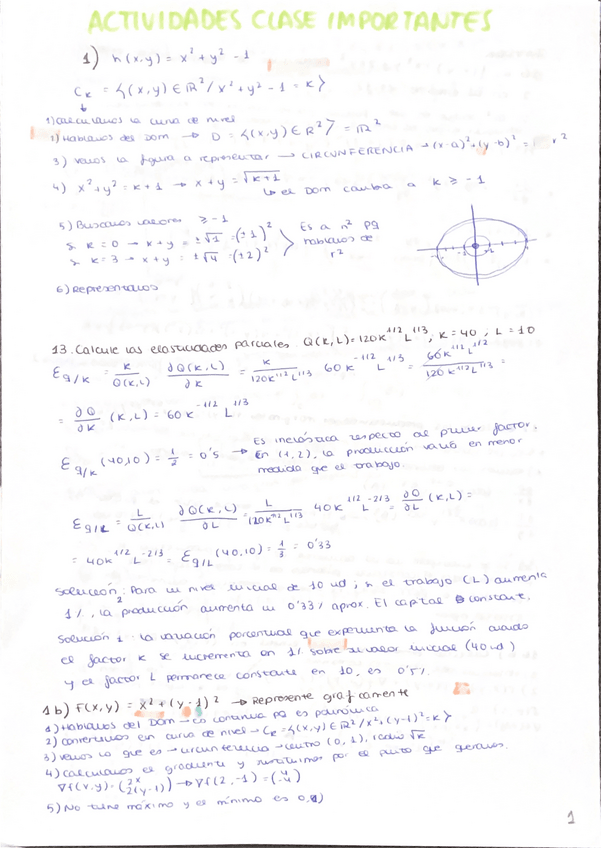 ACTIVIDADES CLASE IMPORTANTES
1) h(x,y) = x² + y² - 1
Cκ = {(x,y) ∈ ℝ² / x² + y² - 1 = k}
1) Calculamos la curva de nivel
1) Hablamos del Dom → D = {(x,y) ∈ ℝ²} = ℝ²
3) Vemos la figura a representar → CIRCUNFERENCIA → (x-a)² + (y-b)² = r²
4) x² + y² = k + 1 → x + y = √k+1
↳ el Dom cambia a k ≥ -1
5) Buscamos valores ≥ -1
Si k = 0 → x + y = ±√1 = (±1)²
Si k = 3 → x + y = ±√4 = (±2)²
Es a n² pq
hablamos de
r²
6) Representamos
13. Calcule las elasticidades parciales. Q(K,L) = 120K^1/2 L^1/3, K = 40, L = 10
Ɛq/K = K/Q(K,L) ∂Q(K,L)/∂K = K/120K^1/2 L^1/3 60K^-1/2 L^1/3 = 60K^1/2 L^1/2/120K^1/2 L^1/3 =
= ∂Q/∂K (K,L) = 60K^-1/2 L^1/3
Ɛq/K (40,10) = 1/2 = 0'5 → Es inelástica respecto al primer factor.
En (1,2), la producción varió en menor
medida que el trabajo.
Ɛq/L = L/Q(K,L) ∂Q(K,L)/∂L = L/120K^1/2 L^1/3 40K^1/2 L^-2/3 = ∂Q/∂L (K,L) =
= 40K^1/2 L^-2/3 = Ɛq/L (40,10) = 1/3 = 0'33
Solución 2: Para un nivel inicial de 10 ud, si el trabajo (L) aumenta
1%, la producción aumenta un 0'33% aprox. El capital constante.
Solución 1: la variación porcentual que experimenta la función cuando
el factor K se incrementa en 1% sobre su valor inicial (40 ud)
y el factor L permanece constante en 10, es 0'5%.
1b) F(x,y) = x² + (y-1)² → Represente graficamente
1) Hablamos del Dom → Es continua pq es polinómica
2) Convertimos en curva de nivel → Cκ = {(x,y) ∈ ℝ² / x² + (y-1)² = k}
3) Vemos lo que es → circunferencia → centro (0,1), radio √k
4) Calculamos el gradiente y sustituimos por el punto que queramos.
∇f(x,y) = (2x 2(y-1)) → ∇f(2,-1) = (4 -4)
5) No tiene máximo y el mínimo es 0,1)
1